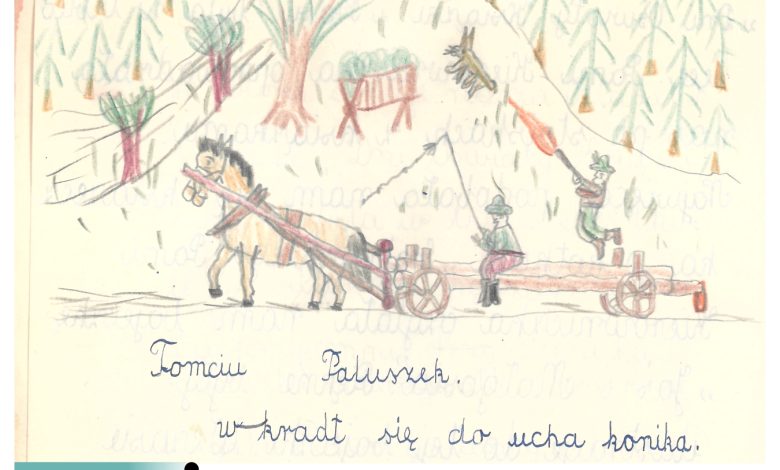 Tomciu Paluszek.
w-kradł się do ucha konika.